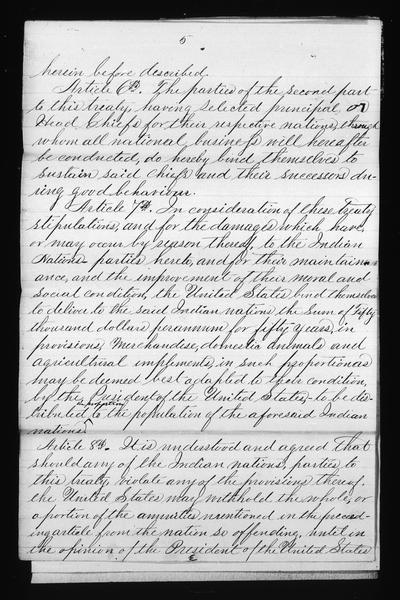 5
herein before described.
Article 6th. The parties of the second part
to this treaty, having selected principal or
Head Chiefs for their respective nations, through
whom all national business will hereafter
be conducted, do hereby bind themselves to
sustain said Chiefs and their successors du-
ring good behaviour.
Article 7th. In consideration of these treaty
stipulations, and for the damages which have,
or may occur by reason thereof, to the Indian
Nations parties hereto, and for their mainten-
ance, and the improvement of their moral and
social condition, the United States bind themselves
to deliver to the said Indian nations, the sum of Fifty
thousand dollars per annum for fifty years, in
provisions, Merchandise, domestic animals and
agricultural implements, in such proportions as
may be deemed best adapted to their condition,
by the President of the United States, to be dis-
tributed in proportion to the population of the aforesaid Indian
nations.
Article 8th. It is understood and agreed that
should any of the Indian nations, parties to
this treaty, violate any of the provisions thereof,
the United States may withhold the whole, or
a portion of the annuities mentioned in the preced-
ing article from the nation so offending, until in
the opinion of the President of the United States